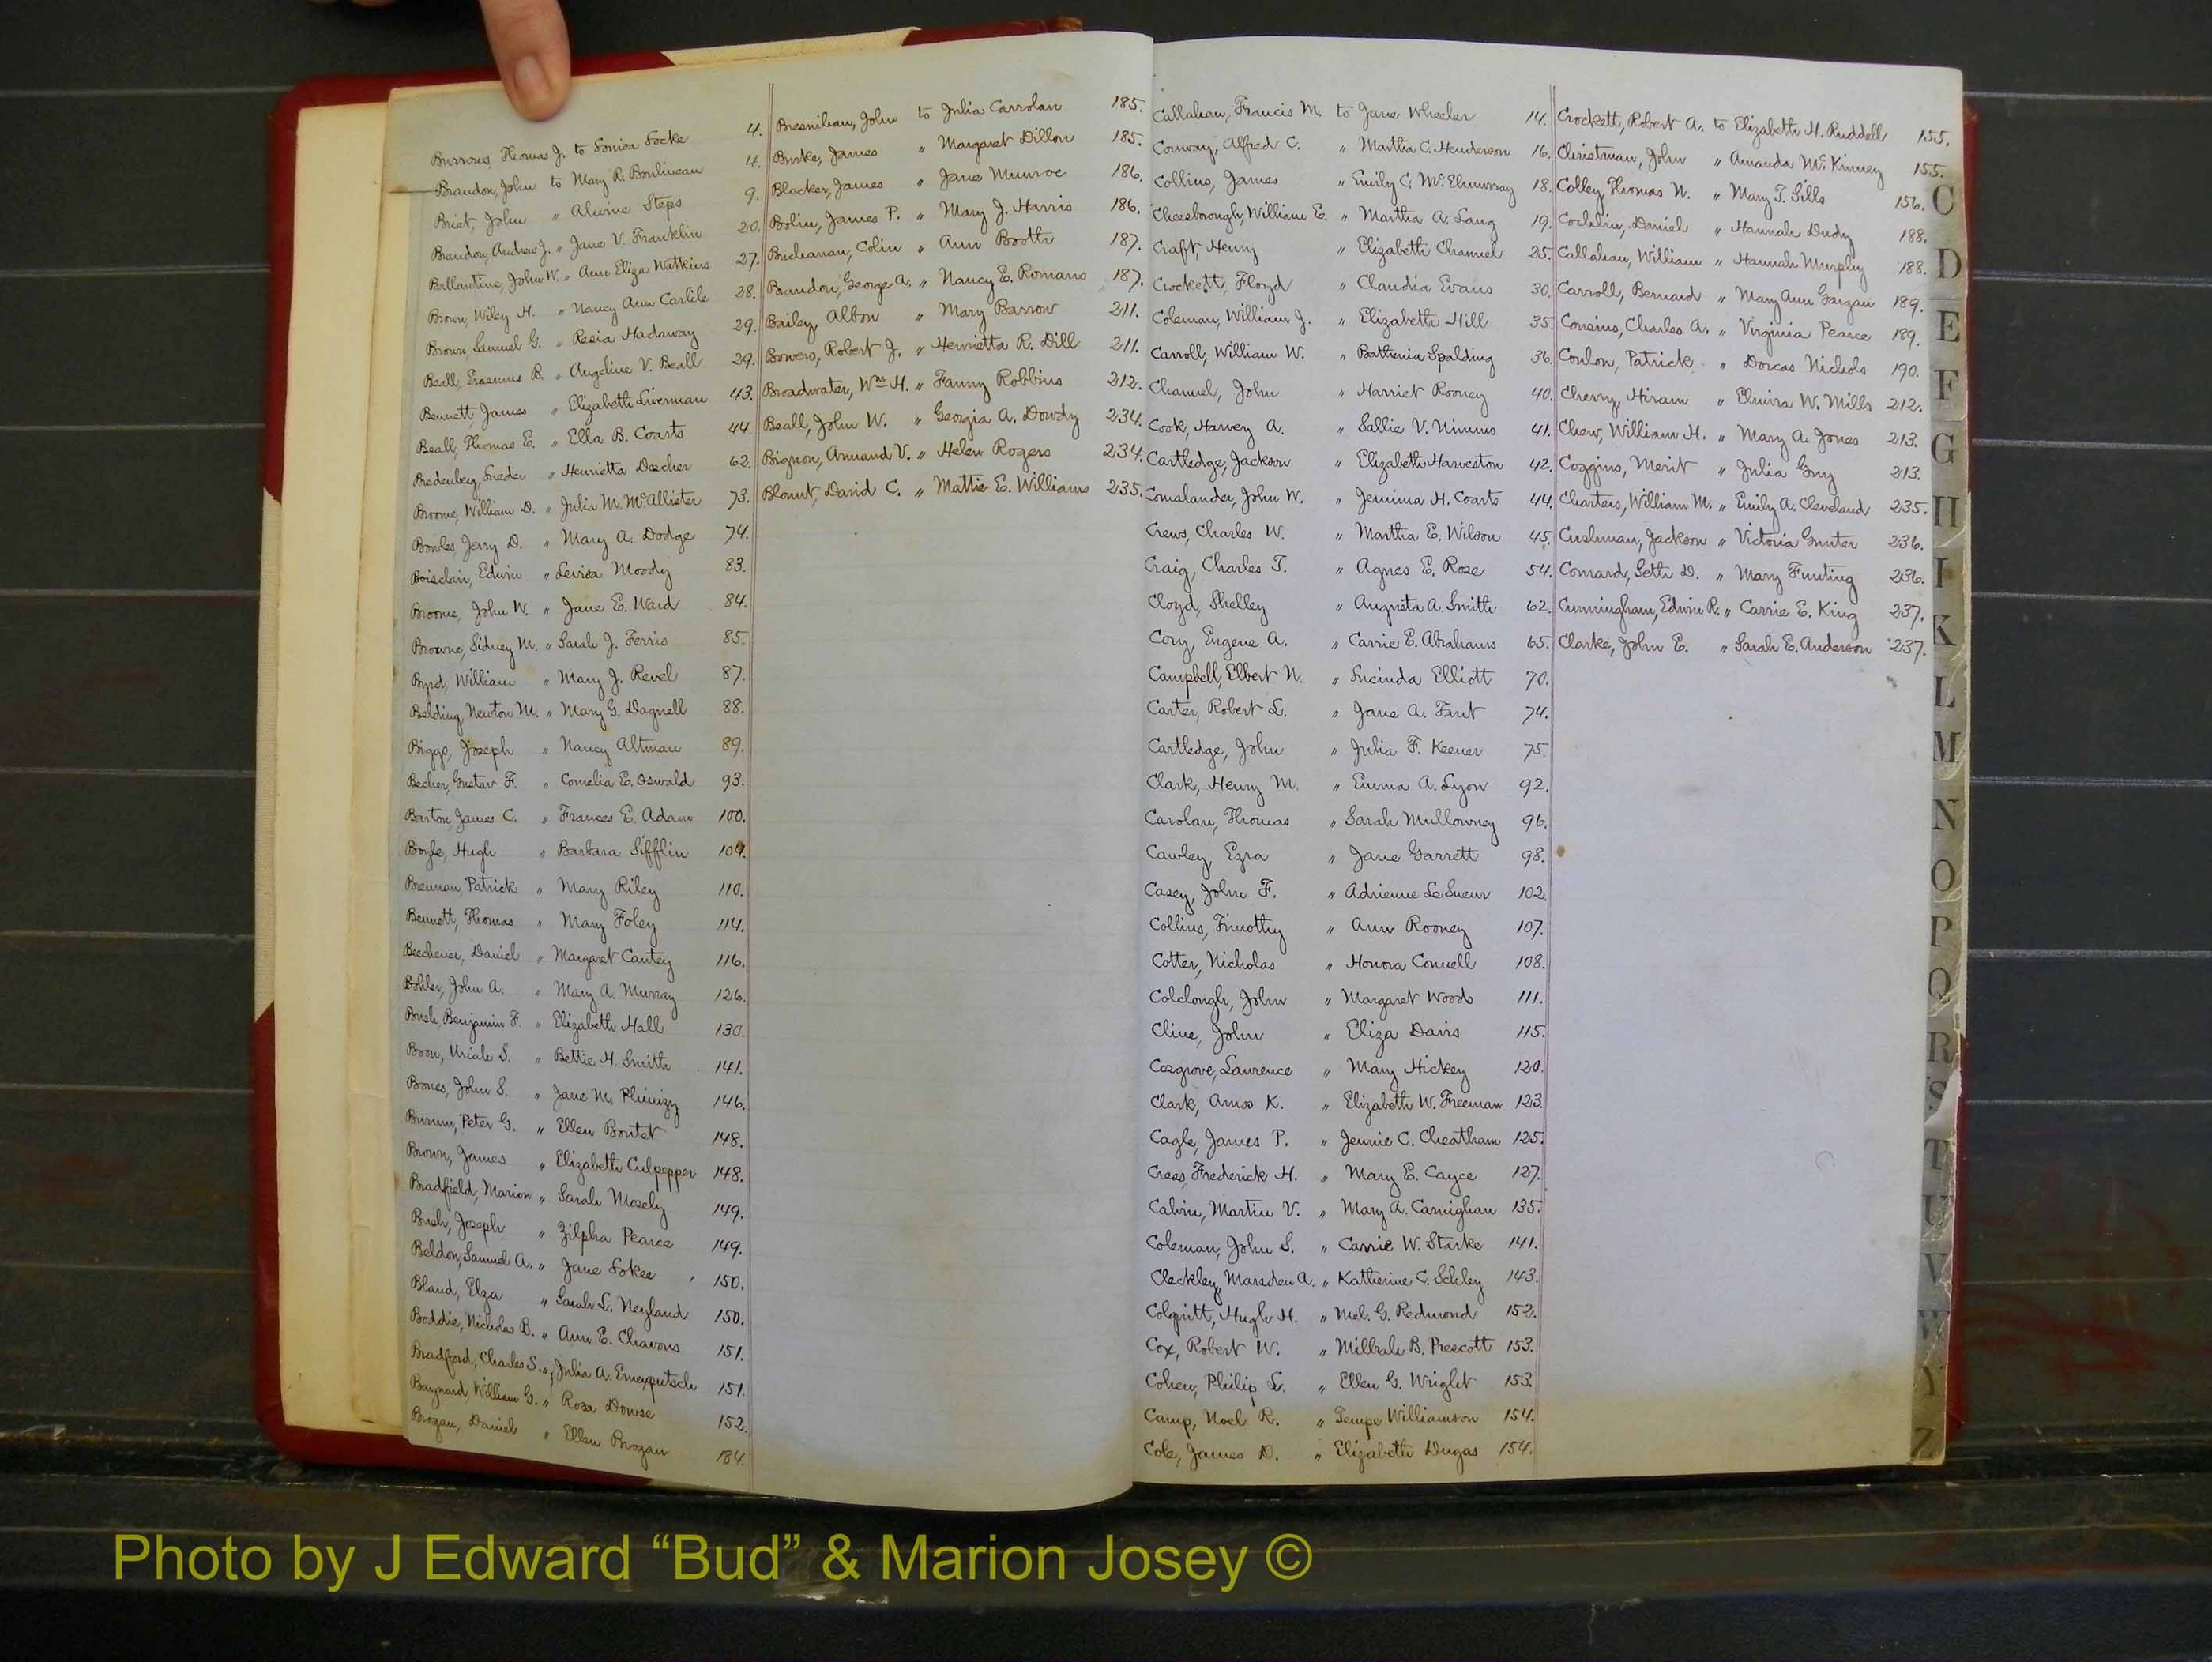 Burrows, Thomas J. to Louisa Locke 4.
Brandon, John to Mary R. Boulineau 4.
Briet, John " Alwine Steps 9.
Brandon, Andrew J. " Jane V. Franklin 20.
Ballantine, John W. " Ann Eliza Watkins 27.
Brown, Wiley H. " Nancy Ann Carlile 28.
Brown, Samuel G. " Resia Hadaway 29.
Beall, Erasmus B. " Angeline V. Beall 29.
Bennett, James " Elizabeth Liverman 43.
Beall, Thomas E. " Ella B. Coarts 44.
Bredenberg, Sneder " Henrietta Dascher 62.
Broome, William D. " Julia M. McAllister 73.
Bowles, Jerry D. " Mary A. Dodge 74.
Boisclair, Edwin " Leviza Moody 83.
Broome, John W. " Jane E. Ward 84.
Browne, Sidney M. " Sarah J. Ferris 85.
Byrd, William " Mary J. Revel 87.
Belding, Newton M. " Mary G. Dagnell 88.
Biggs, Joseph " Nancy Altman 89.
Becher, Gustav F. " Cornelia E. Oswald 93.
Barton, James C. " Frances E. Adam 100.
Boyle, Hugh " Barbara Sifflin 104.
Brennan, Patrick " Mary Riley 110.
Bennett, Thomas " Mary Foley 114.
Beechener, Daniel " Margaret Cantey 116.
Bohler, John A. " Mary A. Murray 126.
Brush, Benjamin F. " Elizabeth Hall 130.
Boon, Uriah S. " Bettie H. Smith 141.
Bones, John S. " Jane M. Phinizy 146.
Burum, Peter G. " Ellen Boutet 148.
Brown, James " Elizabeth Culpepper 148.
Bradfield, Marion " Sarah Mosely 149.
Bush, Joseph " Zilpha Pearce 149.
Beldon, Samuel A. " Jane Sokee 150.
Bland, Elza " Sarah L. Neyland 150.
Boddie, Nicholas B. " Ann E. Chavous 151.
Bradford, Charles S. " Julia A. 151.
Baynard, William G. " Rosa Dowse 152.
Brogan, Daniel " Ellen Brogan 184.
Bresnihan, John to Julia Carrolan 185.
Burke, James " Margaret Dillon 185.
Blacker, James " Jane Munroe 186.
Bolin, James P. " Mary J. Harris 186.
Buchanan, Colin " Ann Booth 187.
Brandon, George A. " Nancy E. Romans 187.
Bailey, Albon " Mary Barrow 211.
Bowers, Robert J. " Henrietta R. Dill 211.
Broadwater, Wm. H. " Fanny Robbins 212.
Beall, John W. " Georgia A. Dowdy 234.
Bignon, Armand V. " Helen Rogers 234.
Blount, David C. " Mattie E. Williams 235.
Callahan, Francis M. to Jane Wheeler 14.
Conway, Alfred C. " Martha C. Henderson 16.
Collins, James " Emily C. McElmurray 18.
Cheesborough, William E. " Martha A. Lang 19.
Craft, Henry " Elizabeth Channel 25.
Crockett, Floyd " Claudia Evans 30.
Coleman, William J. " Elizabeth Hill 35.
Carroll, William W. " Bathenia Spalding 36.
Channel, John " Harriet Rooney 40.
Cook, Harvey A. " Sallie V. Nimmo 41.
Cartledge, Jackson " Elizabeth Harveston 42.
Comalander, John W. " Jemima H. Coarts 44.
Crews, Charles W. " Martha E. Wilson 45.
Craig, Charles T. " Agnes E. Rose 54.
Cloyd, Shelley " Augusta A. Smith 62.
Cory, Eugene A. " Carrie E. Abrahams 65.
Campbell, Elbert N. " Lucinda Elliott 70.
Carter, Robert L. " Jane A. Fant 74.
Cartledge, John " Julia F. Keener 75.
Clark, Henry M. " Emma A. Lyon 92.
Carolan, Thomas " Sarah Mullowney 96.
Cawley, Ezra " Jane Garrett 98.
Casey, John F. " Adrienne LeSueur 102.
Collins, Timothy " Ann Rooney 107.
Cotter, Nicholas " Honora Connell 108.
Colclough, John " Margaret Woods 111.
Cline, John " Eliza Davis 115.
Cosgrove, Laurence " Mary Hickey 120.
Clark, Amos K. " Elizabeth W. Freeman 123.
Cagle, James P. " Jennie C. Cheatham 125.
Crees, Frederick H. " Mary E. Cayce 127.
Calvin, Martin V. " Mary A. Carnighan 135.
Coleman, John S. " Carrie W. Starke 141.
Cleckley, Marsden A. " Katherine C. Schley 143.
Colquitt, Hugh H. " Mel. G. Redmond 152.
Cox, Robert W. " B. Prescott 153.
Cohen, Philip L. " Ellen G. Wright 153.
Camp, Noel R. " Tempe Williamson 154.
Cole, James D. " Elizabeth Dugas 154.
Crockett, Robert A. to Elizabeth H. Ruddell 155.
Christman, John " Amanda McKinney 155.
Colley, Thomas N. " Mary T. Sills 156.
Cochlin, Daniel " Hannah Dudy 188.
Callahan, William " Hannah Murphy 188.
Carroll, Bernard " Mary Ann Gargan 189.
Cousins, Charles A. " Virginia Pearce 189.
Conlon, Patrick " Dorcas Nichols 190.
Cherry, Hiram " Elmira W. Mills 212.
Chew, William H. " Mary A. Jones 213.
Coggins, Merit " Julia Guy 213.
Charters, William M. " Emily A. Cleveland 235.
Cushman, Jackson " Victoria Gunter 236.
Comard, Seth D. " Mary Funting 236.
Cunningham, Edwin R. " Carrie E. King 237.
Clarke, John E. " Sarah E. Anderson 237.
C
D
E
F
G
H
I
K
L
M
N
O
P
Q
R
S
T
U
V
W
Y
Z
Photo by J Edward “Bud” & Marion Josey ©